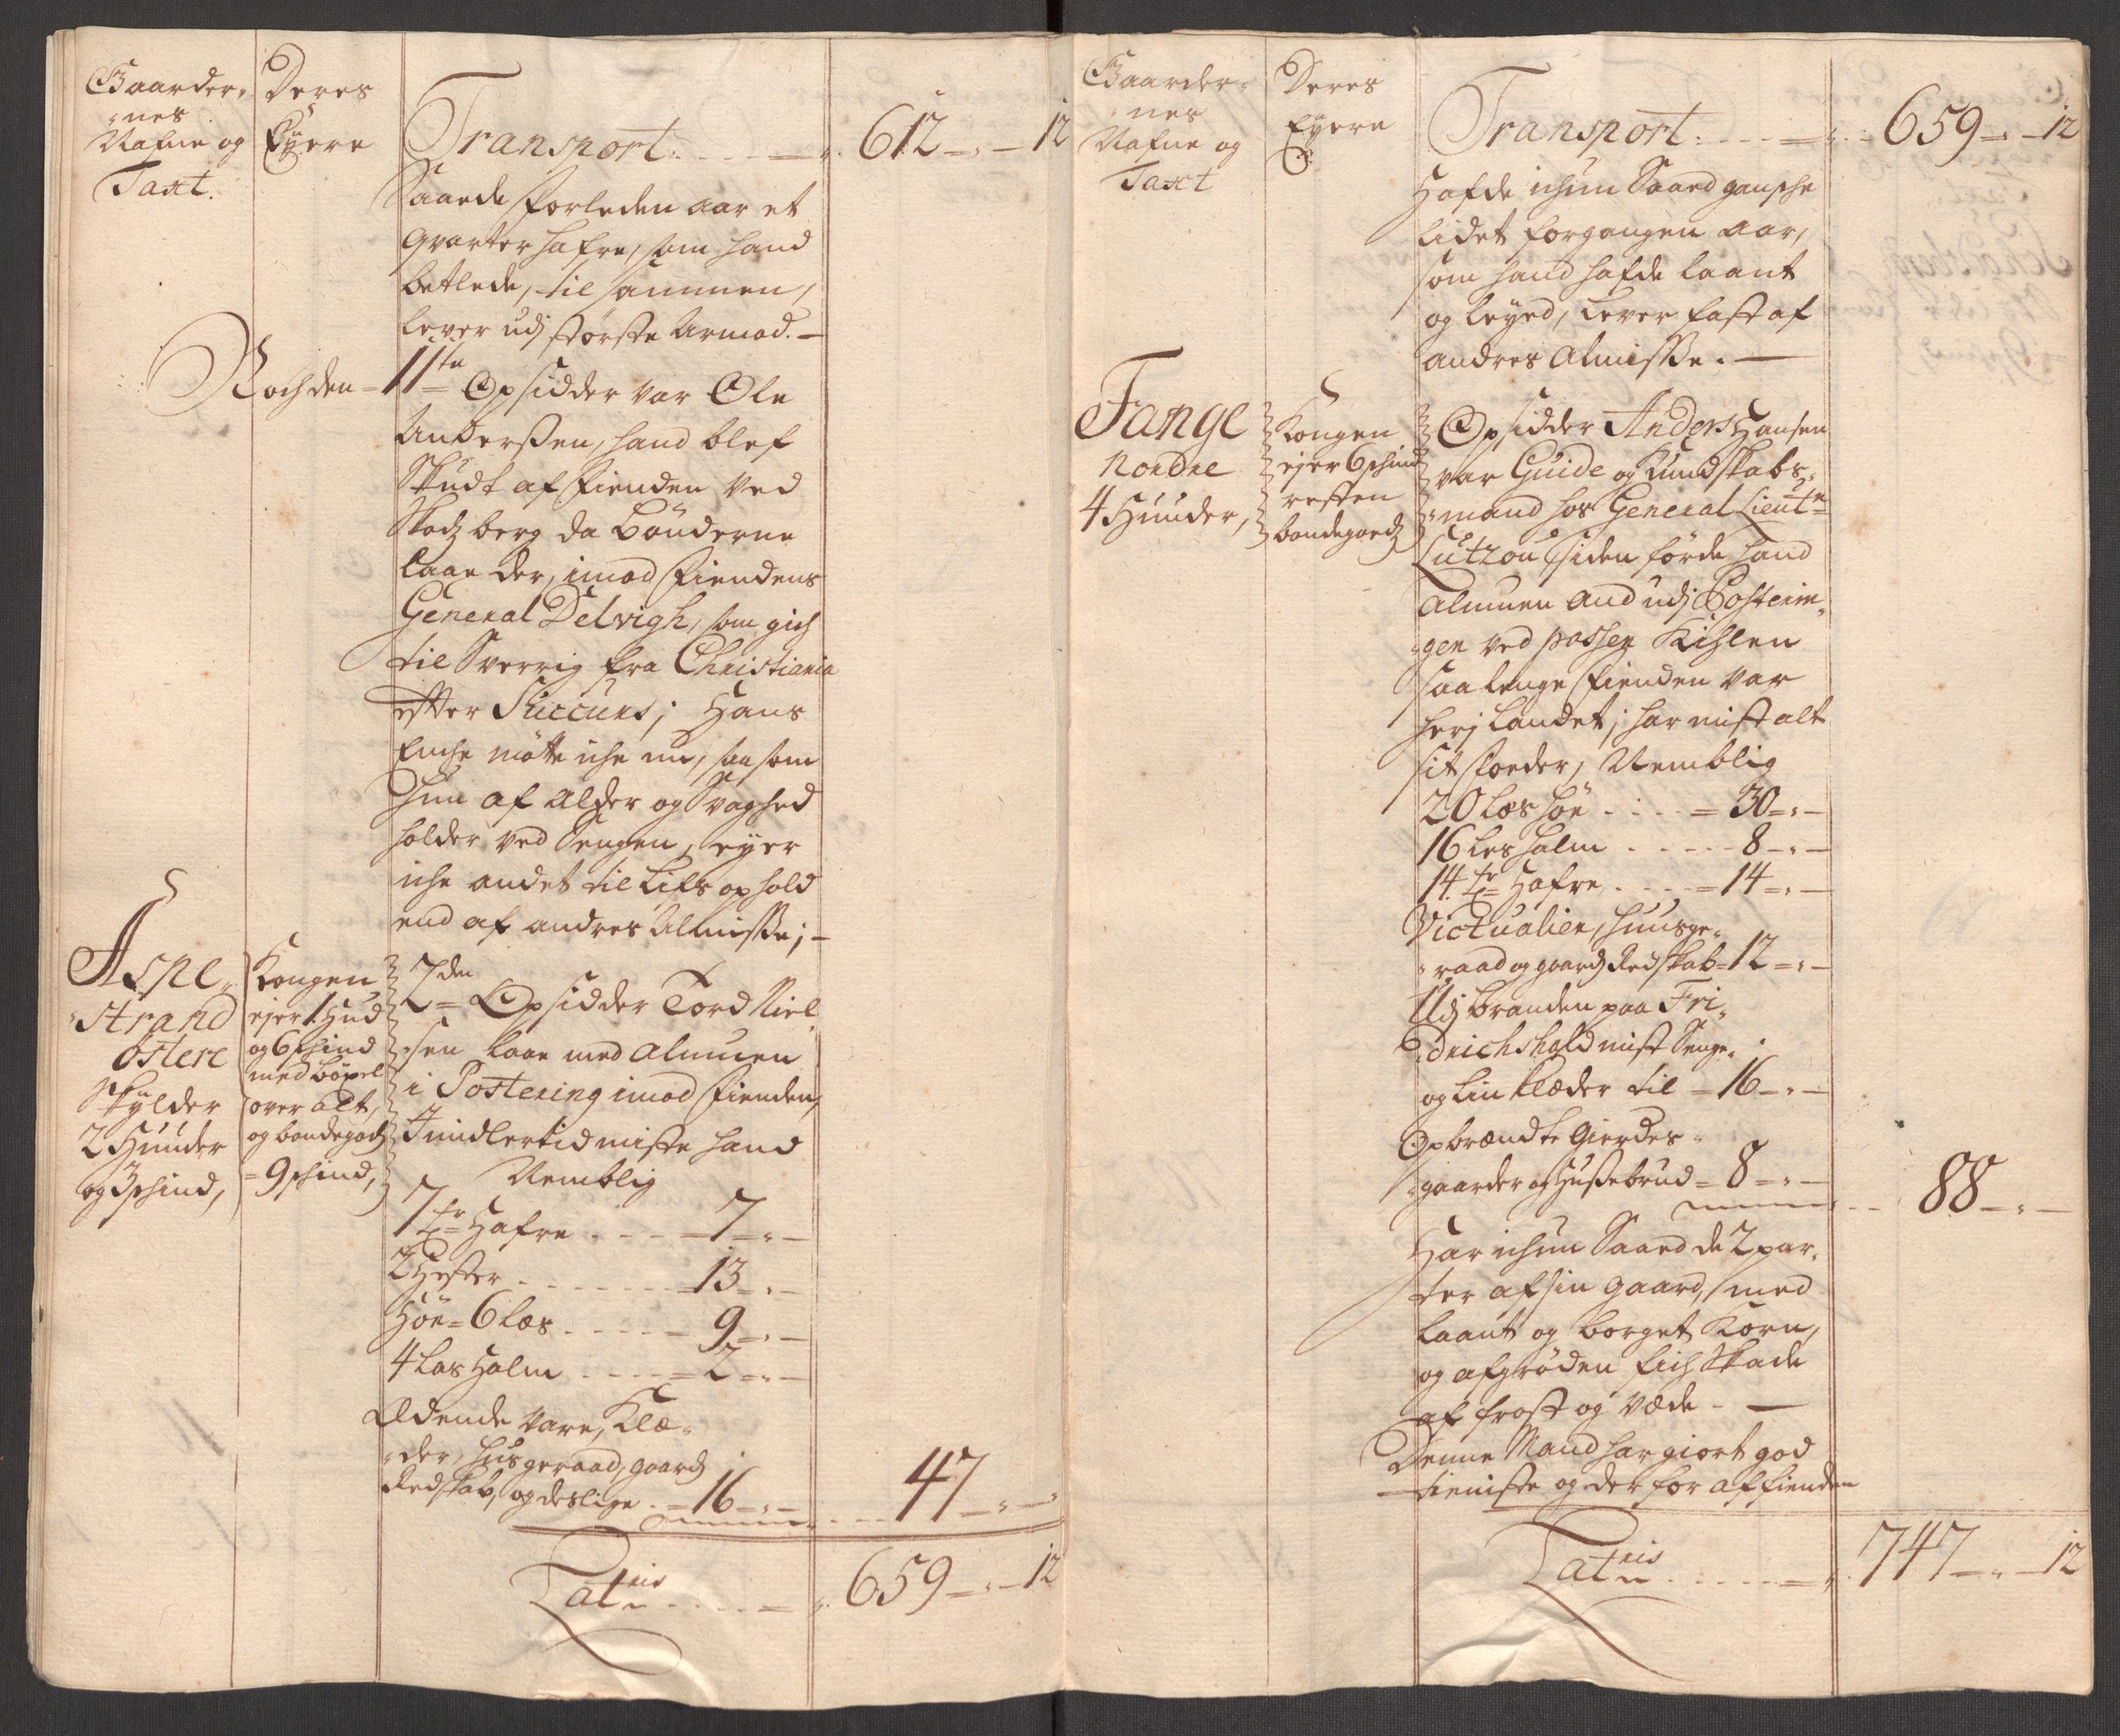 Gaarder-
nes
Nafne og
Taxt.
Deres
Eyere
Transport 612 - 12
Saaede forleden aar et
qvarter hafre, som hand
betlede, til sammen,
lever udj störste Armod. -
Noch den 11te Opsidder var Ole
Anderssen, hand blef
Skudt af Fienden ved
Skotzberg da Bönderne
laae der, imod Fiendens
General Delvigh, som gich
til Sverrig fra Christiania
efter Succurs; Hans
Enche mötte iche nu, saa som
hun af Alder og Svaghed
holder ved Sengen, eyer
iche andet til Lifs ophold
end af andres Almisse; -
Aspe-
strand
östere
Skylder
2 Huuder
og 3 schind,
Kongen
ejer 1 Hud
og 6 schind
med böxel
over alt,
og bondegods
9 schind,
2den Opsidder Tord Niel-
sen laae med Almuen
i Postering imod Fienden,
Imidlertid miste hand
Nemblig
7 tr Hafre - 7 -
2 Hester - 13 -
Höe 6 læs - 9 -
4 Las Halm - 2 -
Ædende Vare, Klæ-
der, husgeraad, gaards
Redskab, og deslige - 16 -
47 -
Lateris 659 - 12
Gaarder-
nes
Nafne og
Taxt
Deres
Eyere
Transport 659 - 12
Hafde ichun Saaed gansche
lidet forgangen aar,
som hand hafde laant
og leyed, Lever fast af
andres Almisse. -
Tange
Nordre
4 Huuder,
Kongen
ejer 6 schind
resten
bondegods
Opsidder Anders Hansen
var Guide og Kundskabs-
mand hos General Lieutn
Lützou siden förde hand
Almuen and udj Posterin-
gen ved passen Kihlen
saa lenge Fienden var
her j Landet; har mist alt
sit Foeder, Nemblig
20 læs höe - 30 -
16 Les halm - 8 -
14 tr Hafre - 14 -
Victualier, huusge-
raad og gaards Redskab - 12 -
Udj branden paa Fri-
drichshald mist Senge-
og Lin klæder til - 16 -
Opbrændte Gierdes-
gaarder og Hussebrud - 8 -
88 -
Har ichun Saaed de 2 par-
ter af sin gaard, med
laant og borget Korn,
og afgröden fich Skade
af frost og væde. -
Denne Mand har giort god
tieniste og derfor af fienden
Lateris 747 - 12